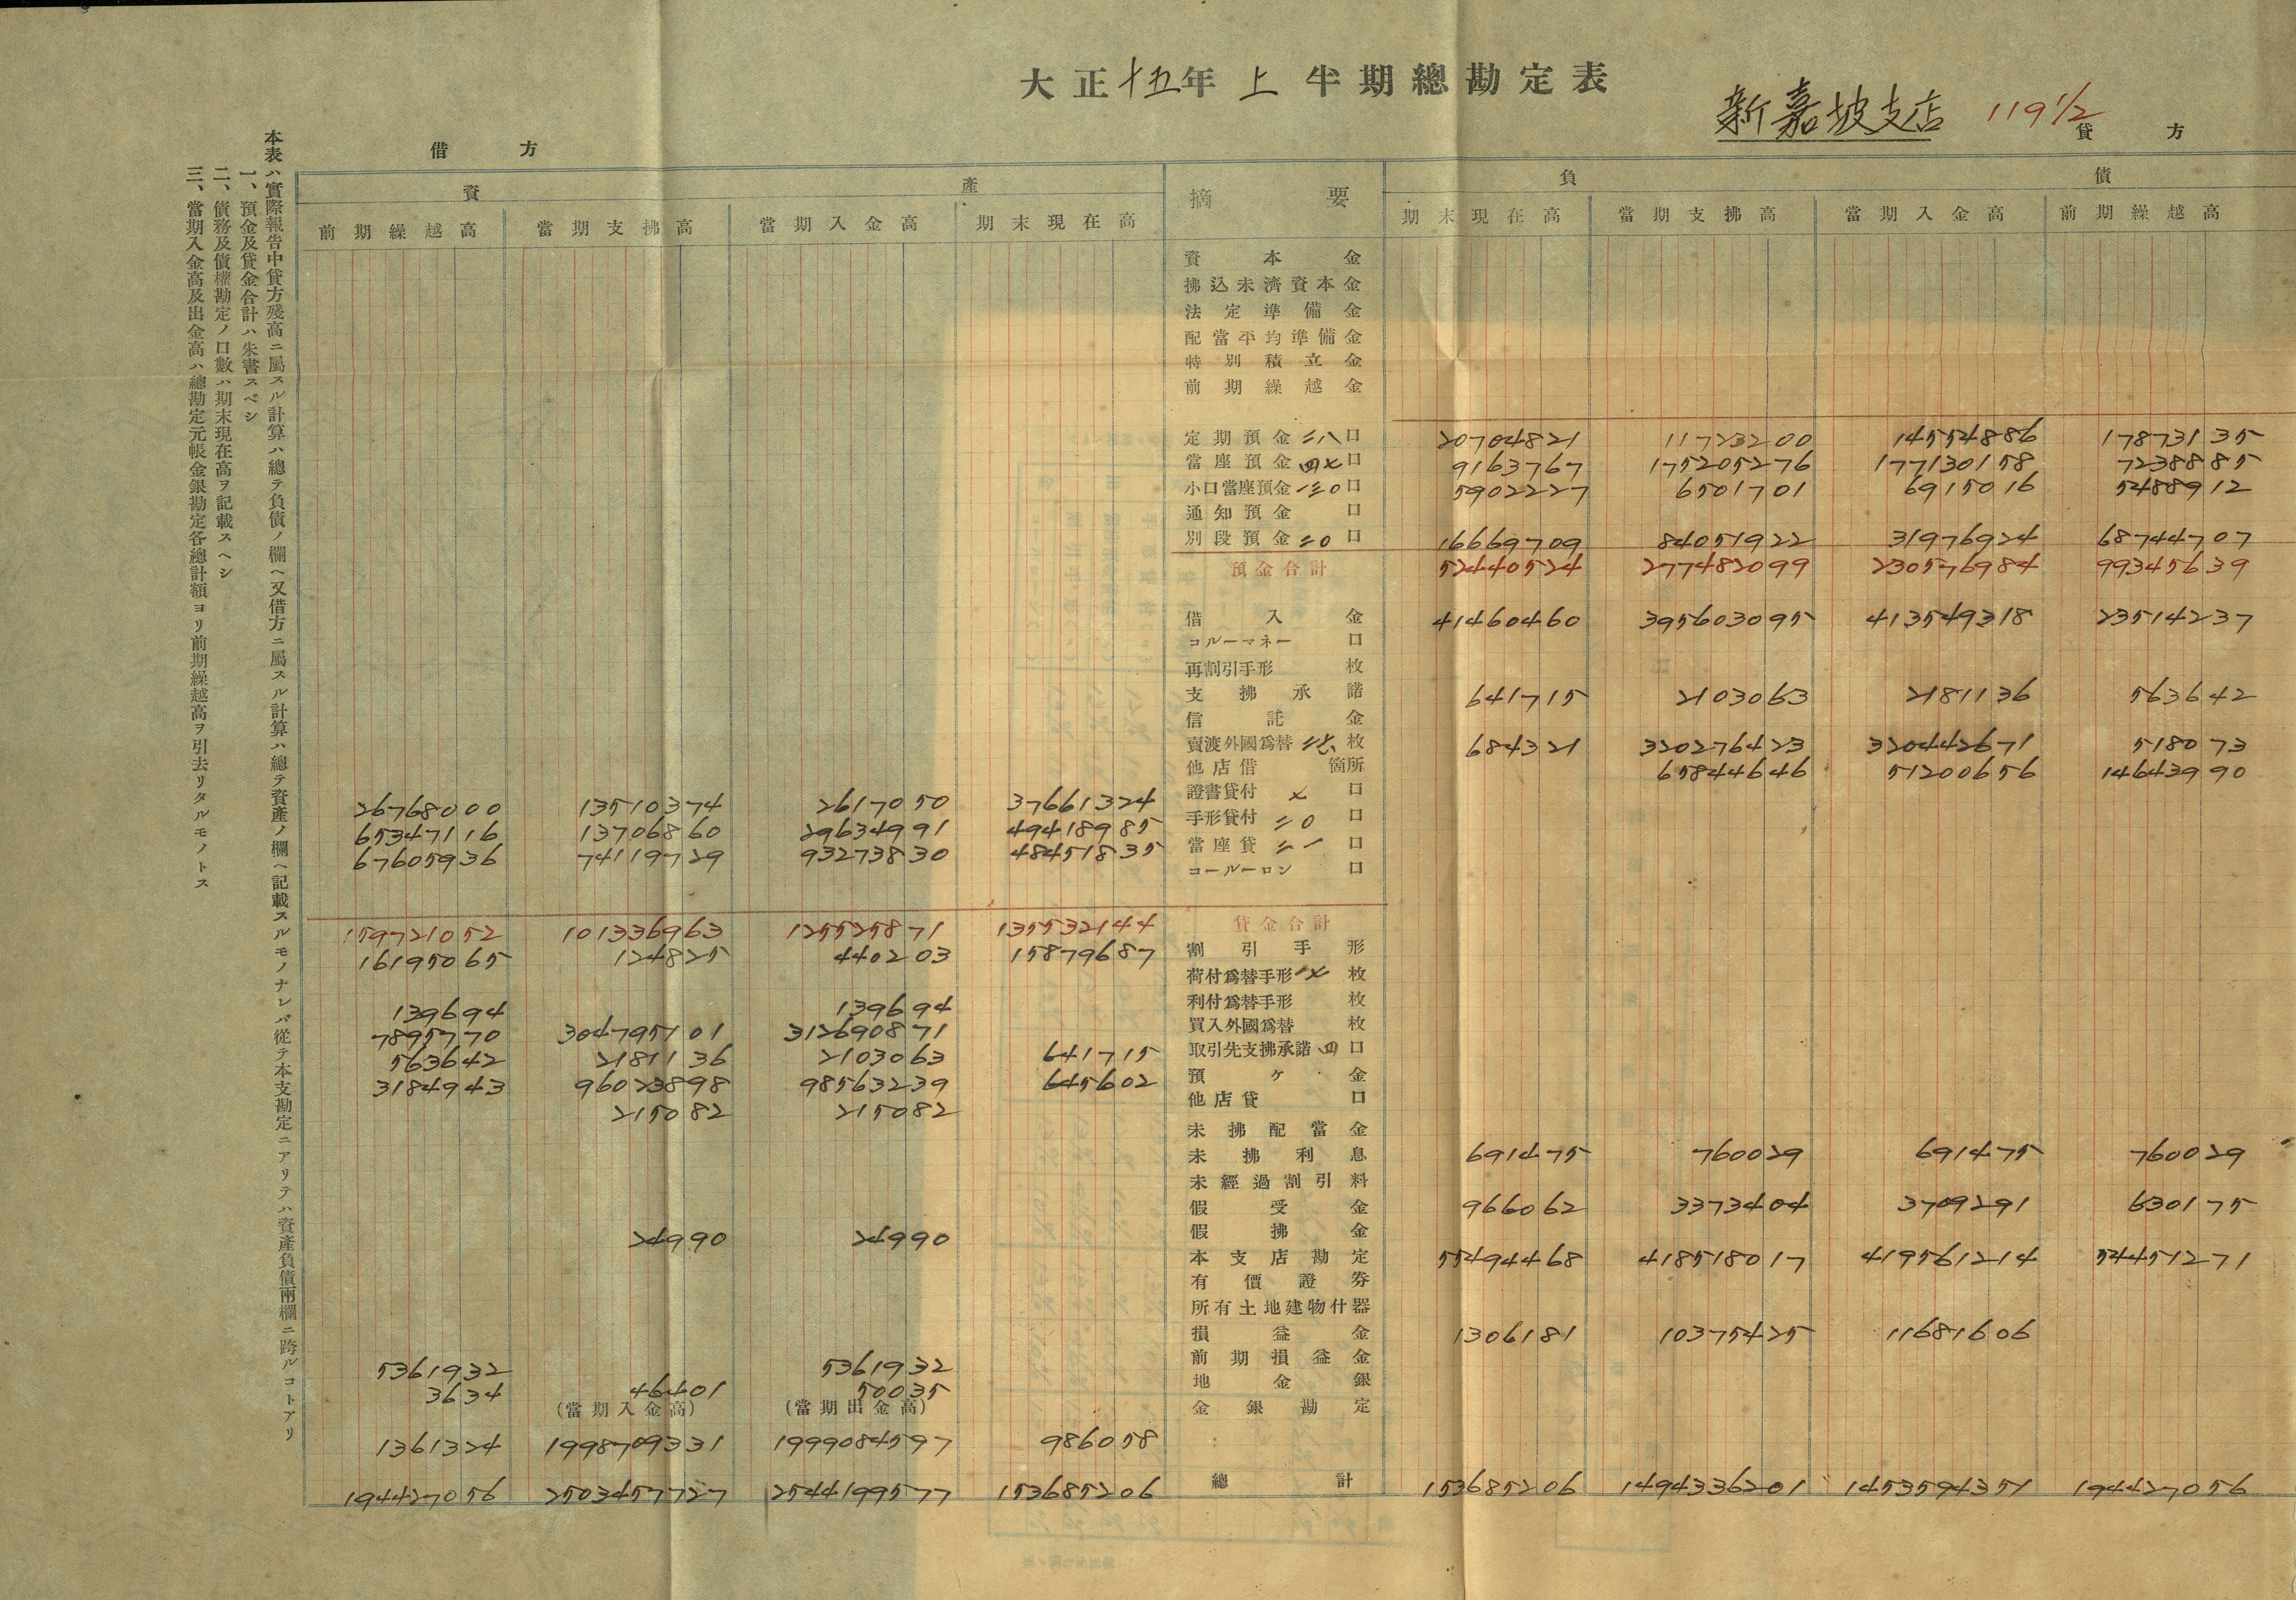 大正十五年上半期總勘定表
新嘉坡支店 119 1/2
借方 貸方
資產 摘要 負債
前期繰越高 當期支拂高 當期入金高 期末現在高 期末現在高 當期支拂高 當期入金高 前期繰越高
資本金
拂込未濟資本金
法定準備金
配當平均準備金
特別積立金
前期繰越金
定期預金 二八口 20704821 11723200 14554886 17873135
當座預金 四七口 9163767 175205276 177130158 7238885
小口當座預金 一三〇口 5902227 6501701 6915016 5488912
通知預金 口
別段預金 二〇口 16669709 84051922 31976924 68744707
預金合計 52440524 277482099 230576984 99345639
借入金 41460460 395603095 413549318 23514237
コルーマネー 口
再割引手形 枚
支拂承諾 641715 2103063 2181136 563642
信託金
賣渡外國爲替 枚 684321 320276423 320442671 518073
他店借 箇所 65844646 51200656 14643990
26768000 13510374 2617050 37661324 證書貸付 七口
65347116 13706860 29634991 49418985 手形貸付 二〇口
67605936 74119729 93273830 48451835 當座貸 二一口
コールーロン 口
159721052 101336963 125525871 135532144 貸金合計
16195065 124825 440203 15879687 割引手形
荷付爲替手形 一七枚
139694 139694 利付爲替手形 枚
7895770 304795101 312690871 買入外國爲替 枚
563642 2181136 2103063 641715 取引先支拂承諾 四口
3184943 96023898 98563239 645602 預ヶ金
215082 215082 他店貸 口
未拂配當金
未拂利息 691475 760029 691475 760029
未經過割引料
假受金 966062 3373404 3709291 630175
24990 24990 假拂金
本支店勘定 55494468 418518017 419561214 54451271
有價證券
所有土地建物什器
損益金 1306181 10375425 11681606
5361932 5361932 前期損益金
3634 46401 50035 地金銀
(當期入金高) (當期出金高) 金銀勘定
1361324 1998709331 1999084597 986058
194427056 2503457727 2544199577 153685206 總計 153685206 1494336201 1453594351 194427056
本表ハ實際報告中貸方殘高ニ屬スル計算ハ總テ負債ノ欄ヘ又借方ニ屬スル計算ハ總テ資產ノ欄ヘ記載スルモノナレバ從テ本支勘定ニアリテハ資產負債兩欄ニ跨ルコトアリ
一、預金及貸金合計ハ朱書スベシ
二、債務及債權勘定ノ口數ハ期末現在高ヲ記載スヘシ
三、當期入金高及出金高ハ總勘定元帳金銀勘定各總計額ヨリ前期繰越高ヲ引去リタルモノトス